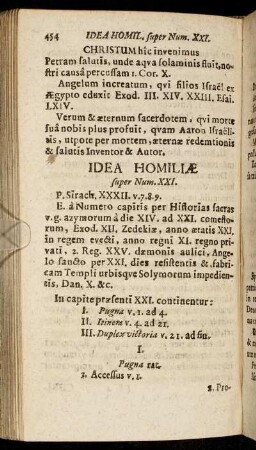 454 IDEA HOMIL. super Num. XXI.
CHRISTUM hic invenimus
Petram salutis, unde aqva solaminis fluit, no-
stri causâ percussam 1. Cor. X.
Angelum increatum, qvi filios Israël ex
Ægypto eduxit Exod. III. XIV. XXIII. Esai.
LXIV.
Verum & æternum sacerdotem, qvi morte
suâ nobis plus profuit, qvam Aaron Israëli-
tis, utpote per mortem, æternæ redemtionis
& salutis Inventor & Autor.
IDEA HOMILIÆ
super Num. XXI.
P. Sirach. XXXII. v. 7.8.9.
E. à Numero capitis per Historias sacras
v.g. azymorum â die XIV. ad XXI. comesto-
rum, Exod. XII. Zedekiæ, anno ætatis XXI.
in regem evecti, anno regni XI. regno pri-
vati, 2. Reg. XXV. dæmonis aulici, Ange-
lo sancto per XXI. dies resistentis & fabri-
cam Templi urbisqve Solymorum impedien-
tis, Dan. X. &c.
In capite præsenti XXI. continentur:
I. Pugna v. 1. ad 4.
II. Itinera v. 4. ad 21.
III. Duplex victoria v. 21. ad fin.
I.
Pugna rat.
1. Accessus v. 1.
2. Pro-